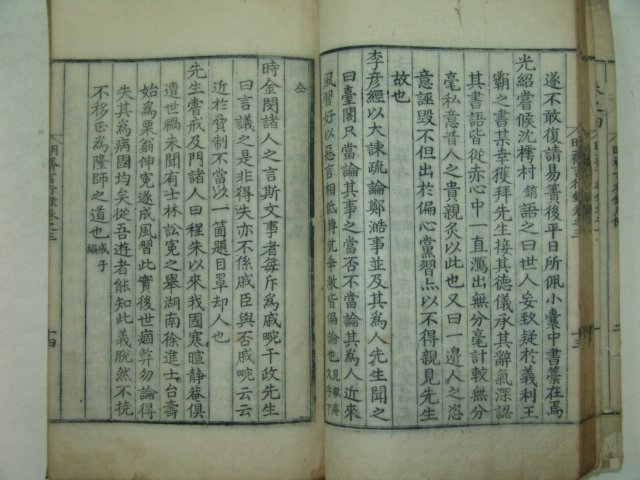 遂不敢復請易簀後平日所佩小囊中書藁在焉
光紹嘗候沈樗村錥語之曰世人妄致疑於義利王
霸之書某幸獲拜先生接其德儀承其辭氣深認
其書語皆從赤心中一直瀉出無分毫計較無分
毫私意昔人之貴親炙以此也又曰一邊人之恣
意誣毀不但出於偏心黨習点以不得親見先生
故也
李彦經以大諫疏論鄭澔事並及其為人先生聞之
曰臺閣只當論其事之當否不當論其為人近來
風習好以惡言相低
仝
時金閔諸人之言斯文事者每斥為戚畹干政先生
曰言議之是非得失亦不係戚臣與否戚畹云云
近於脅制不當以一箇題目罩却人也
先生嘗戒及門諸人曰程朱以來我國寒暄静菴俱
遭世禍未聞有士林訟寃之舉湖南徐進士台壽
始為栗翁伸寃遂成風習此實後世痼弊勿論得
失其為病國均矣從吾遊者能知此義脫然不撓
不移正為隆師之道也 戒子編
明齋言行錄卷之三
十四